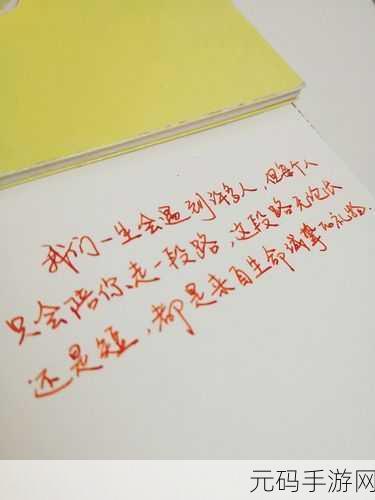 我们一生会遇到许多人，但每个人
只会陪你走一段路，这段路无论长
还是短，都是来自生命诚挚的礼物.
元码手游网